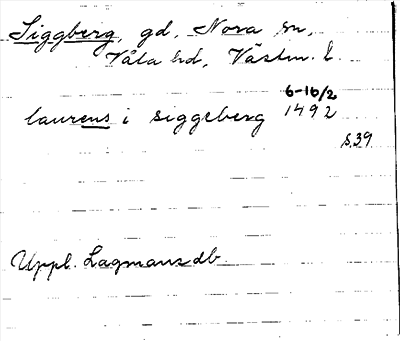 Siggberg, gd, Nora sn,
Våla hd, Västm. l.
laurens i siggeberg 6-16/2 1492
s.39
Uppl. Lagmansdb.